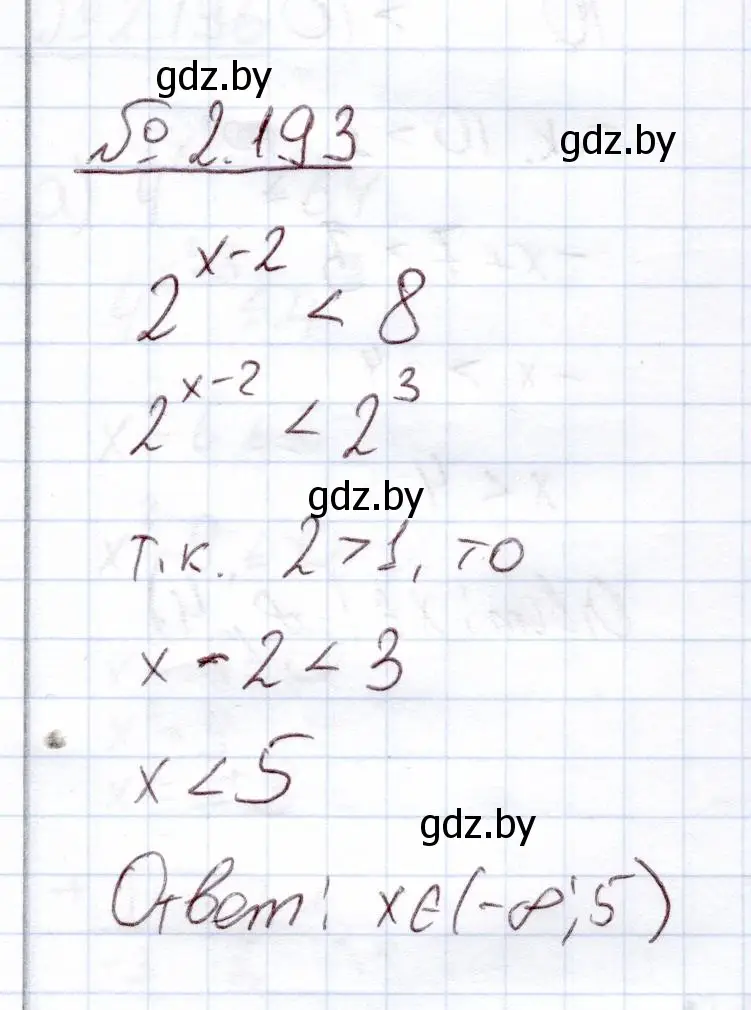 gdz.by
№ 2.193
gdz.by
2^{x-2} < 8
2^{x-2} < 2^3
gdz.by
т.к. 2 > 1, то
x - 2 < 3
x < 5
gdz.by
Ответ: x ∈ (-∞; 5)